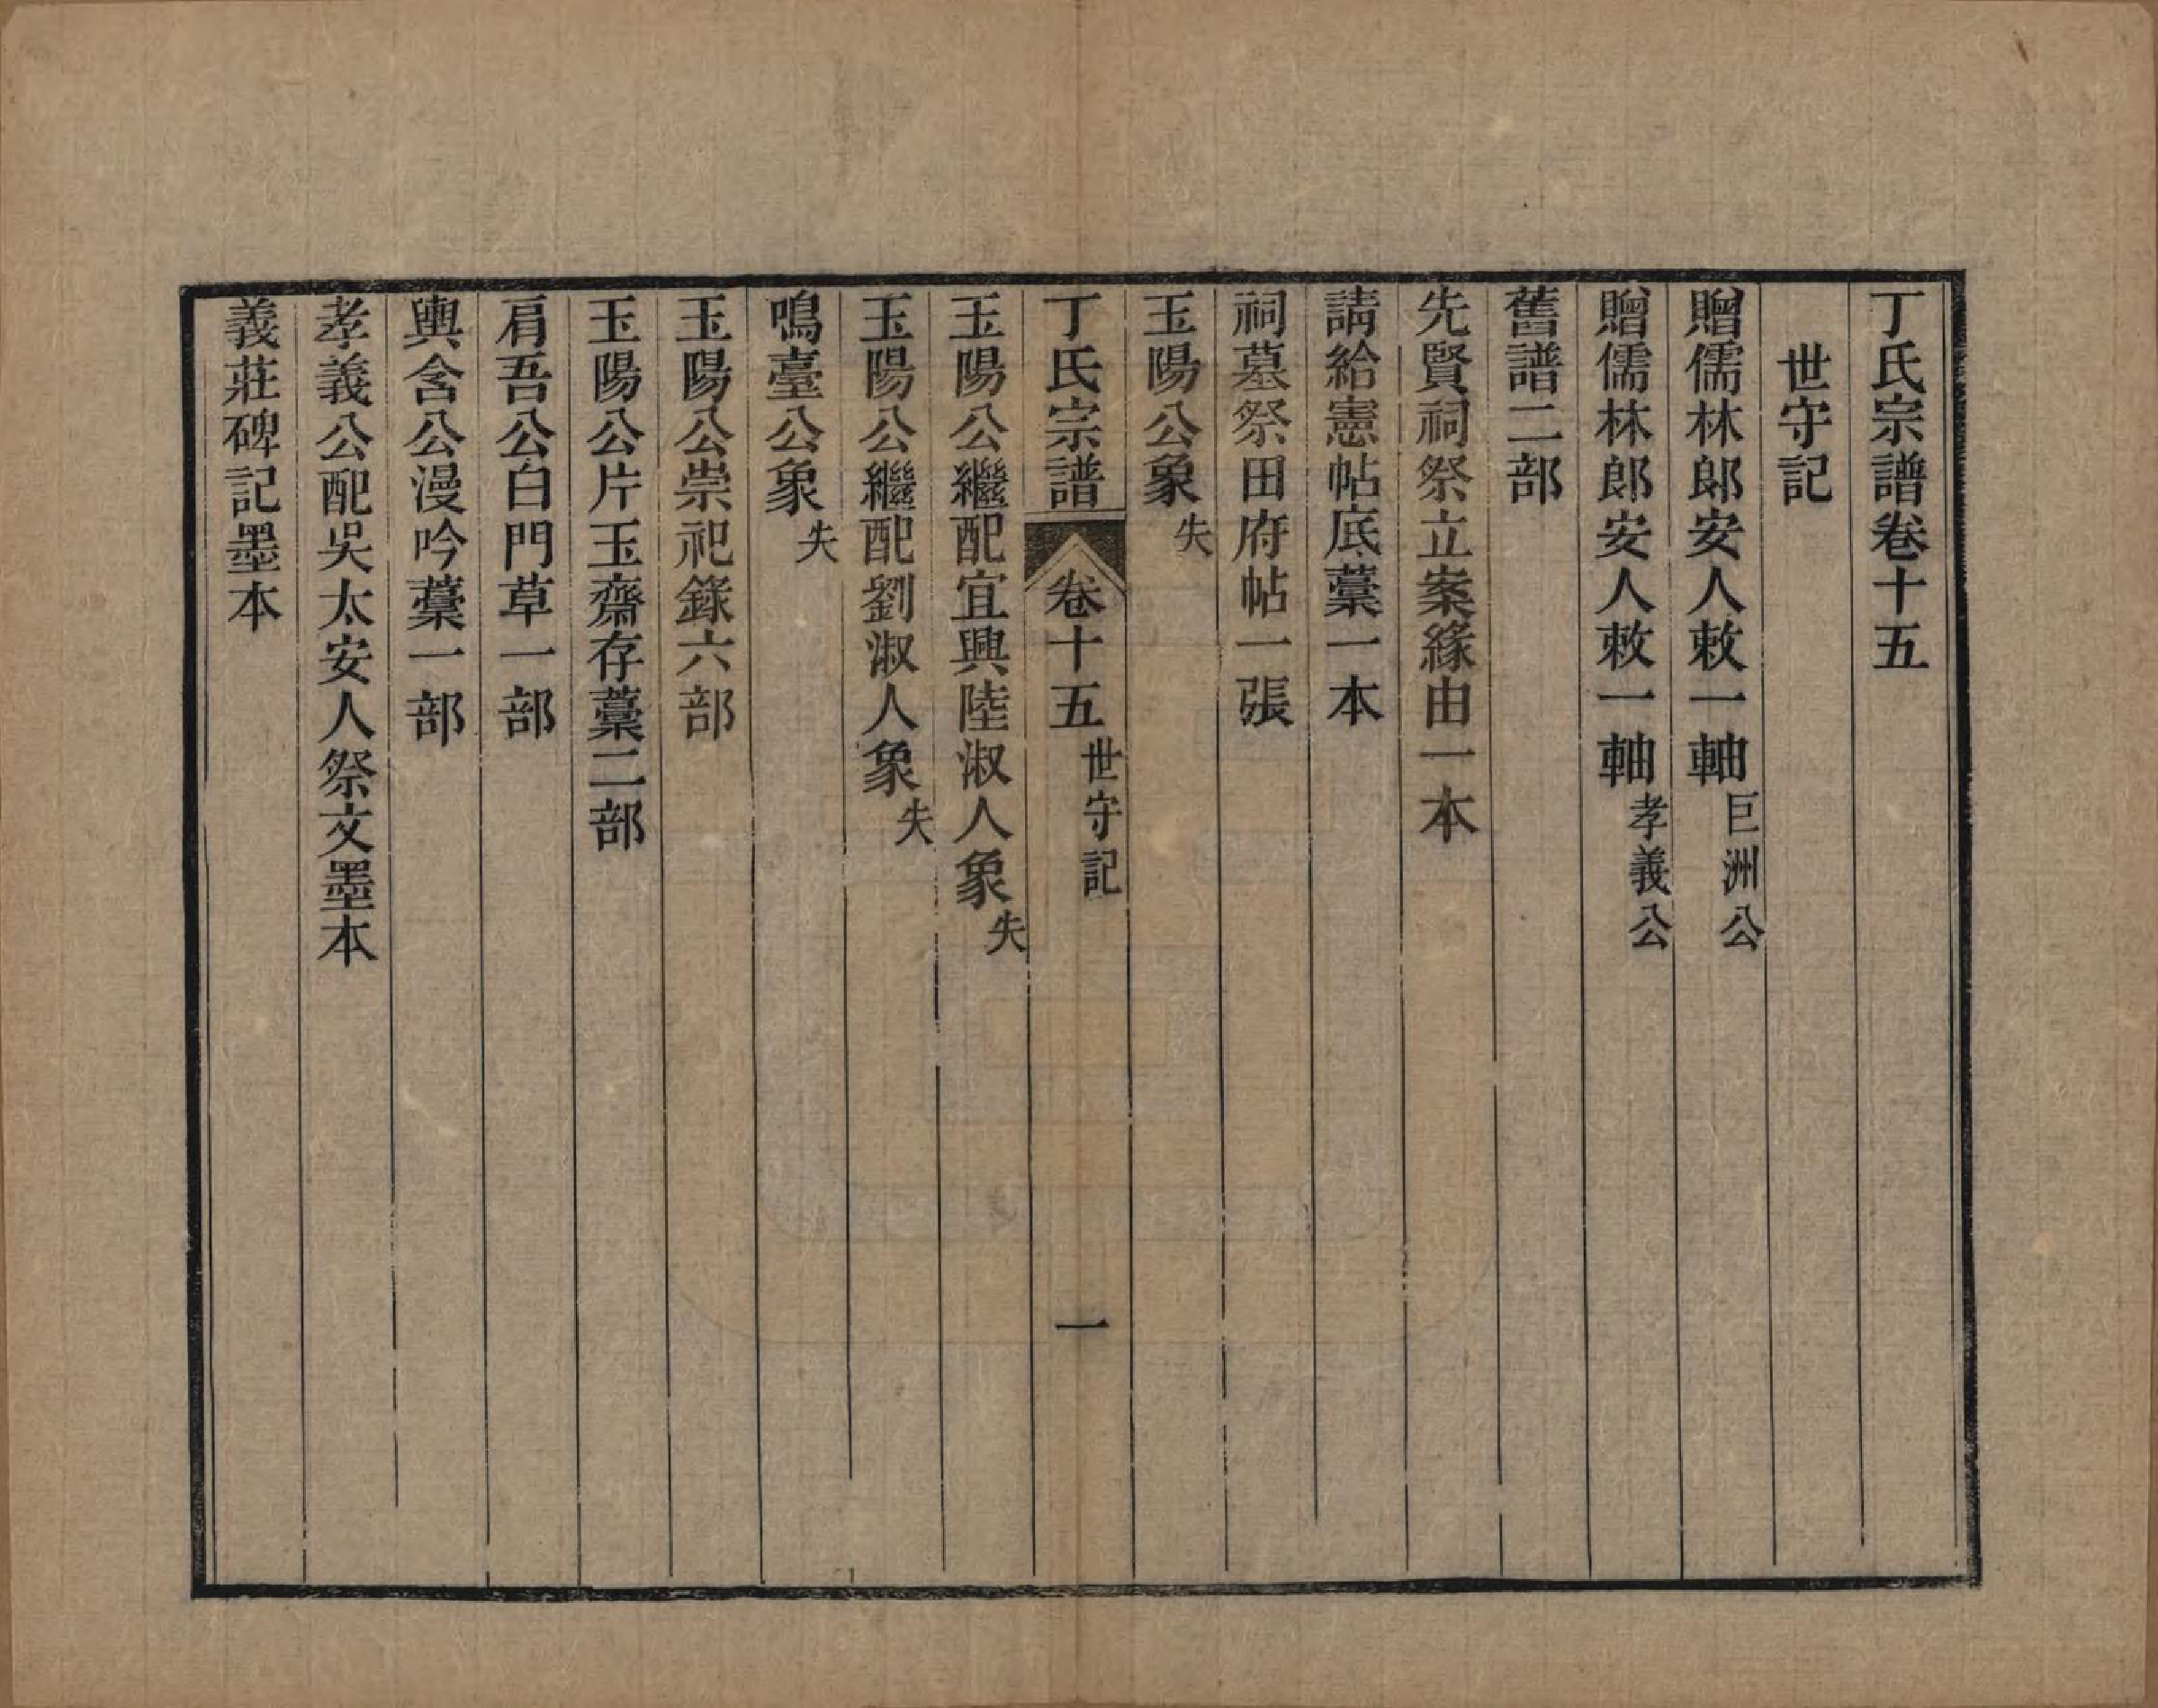 丁氏宗譜卷十五
世守記
贈儒林郎安人敕一軸巨洲公
贈儒林郎安人敕一軸孝義公
舊譜二部
先賢祠祭立案緣由一本
請給憲帖底藳一本
祠墓祭田府帖一張
玉陽公象失
丁氏宗譜 卷十五 世守記 一
玉陽公繼配宜興陸淑人象失
玉陽公繼配劉淑人象失
鳴臺公象失
玉陽公崇祀錄六部
玉陽公片玉齋存藳二部
肩吾公白門草一部
輿含公漫吟藳一部
孝義公配吳太安人祭文墨本
義莊碑記墨本